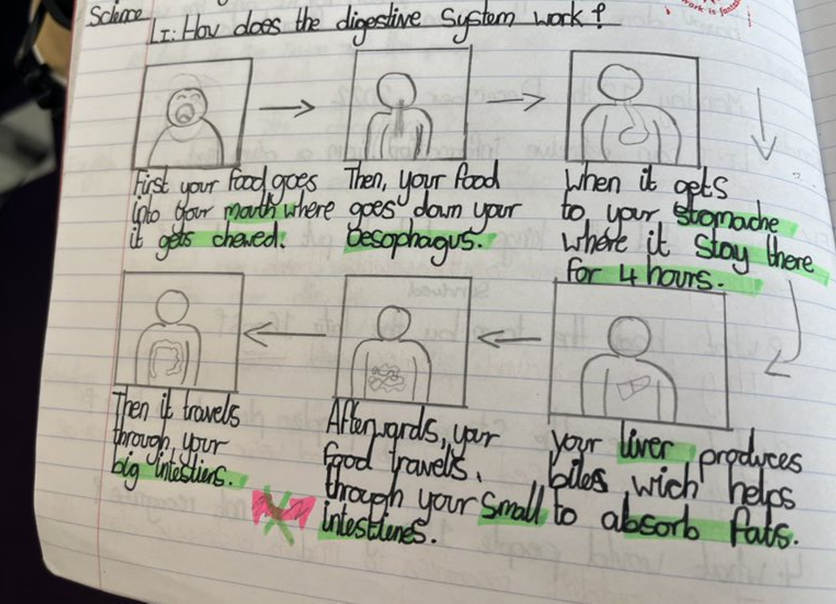 Science
LI: How does the digestive system work?
First your food goes
into your mouth where
it gets chewed.
Then, your food
goes down your
oesophagus.
When it gets
to your stomache
where it stay there
for 4 hours.
your liver produces
biles wich helps
to absorb fats.
Afterwards, your
food travels
through your small
intestines.
Then it travels
through your
big intestiens.